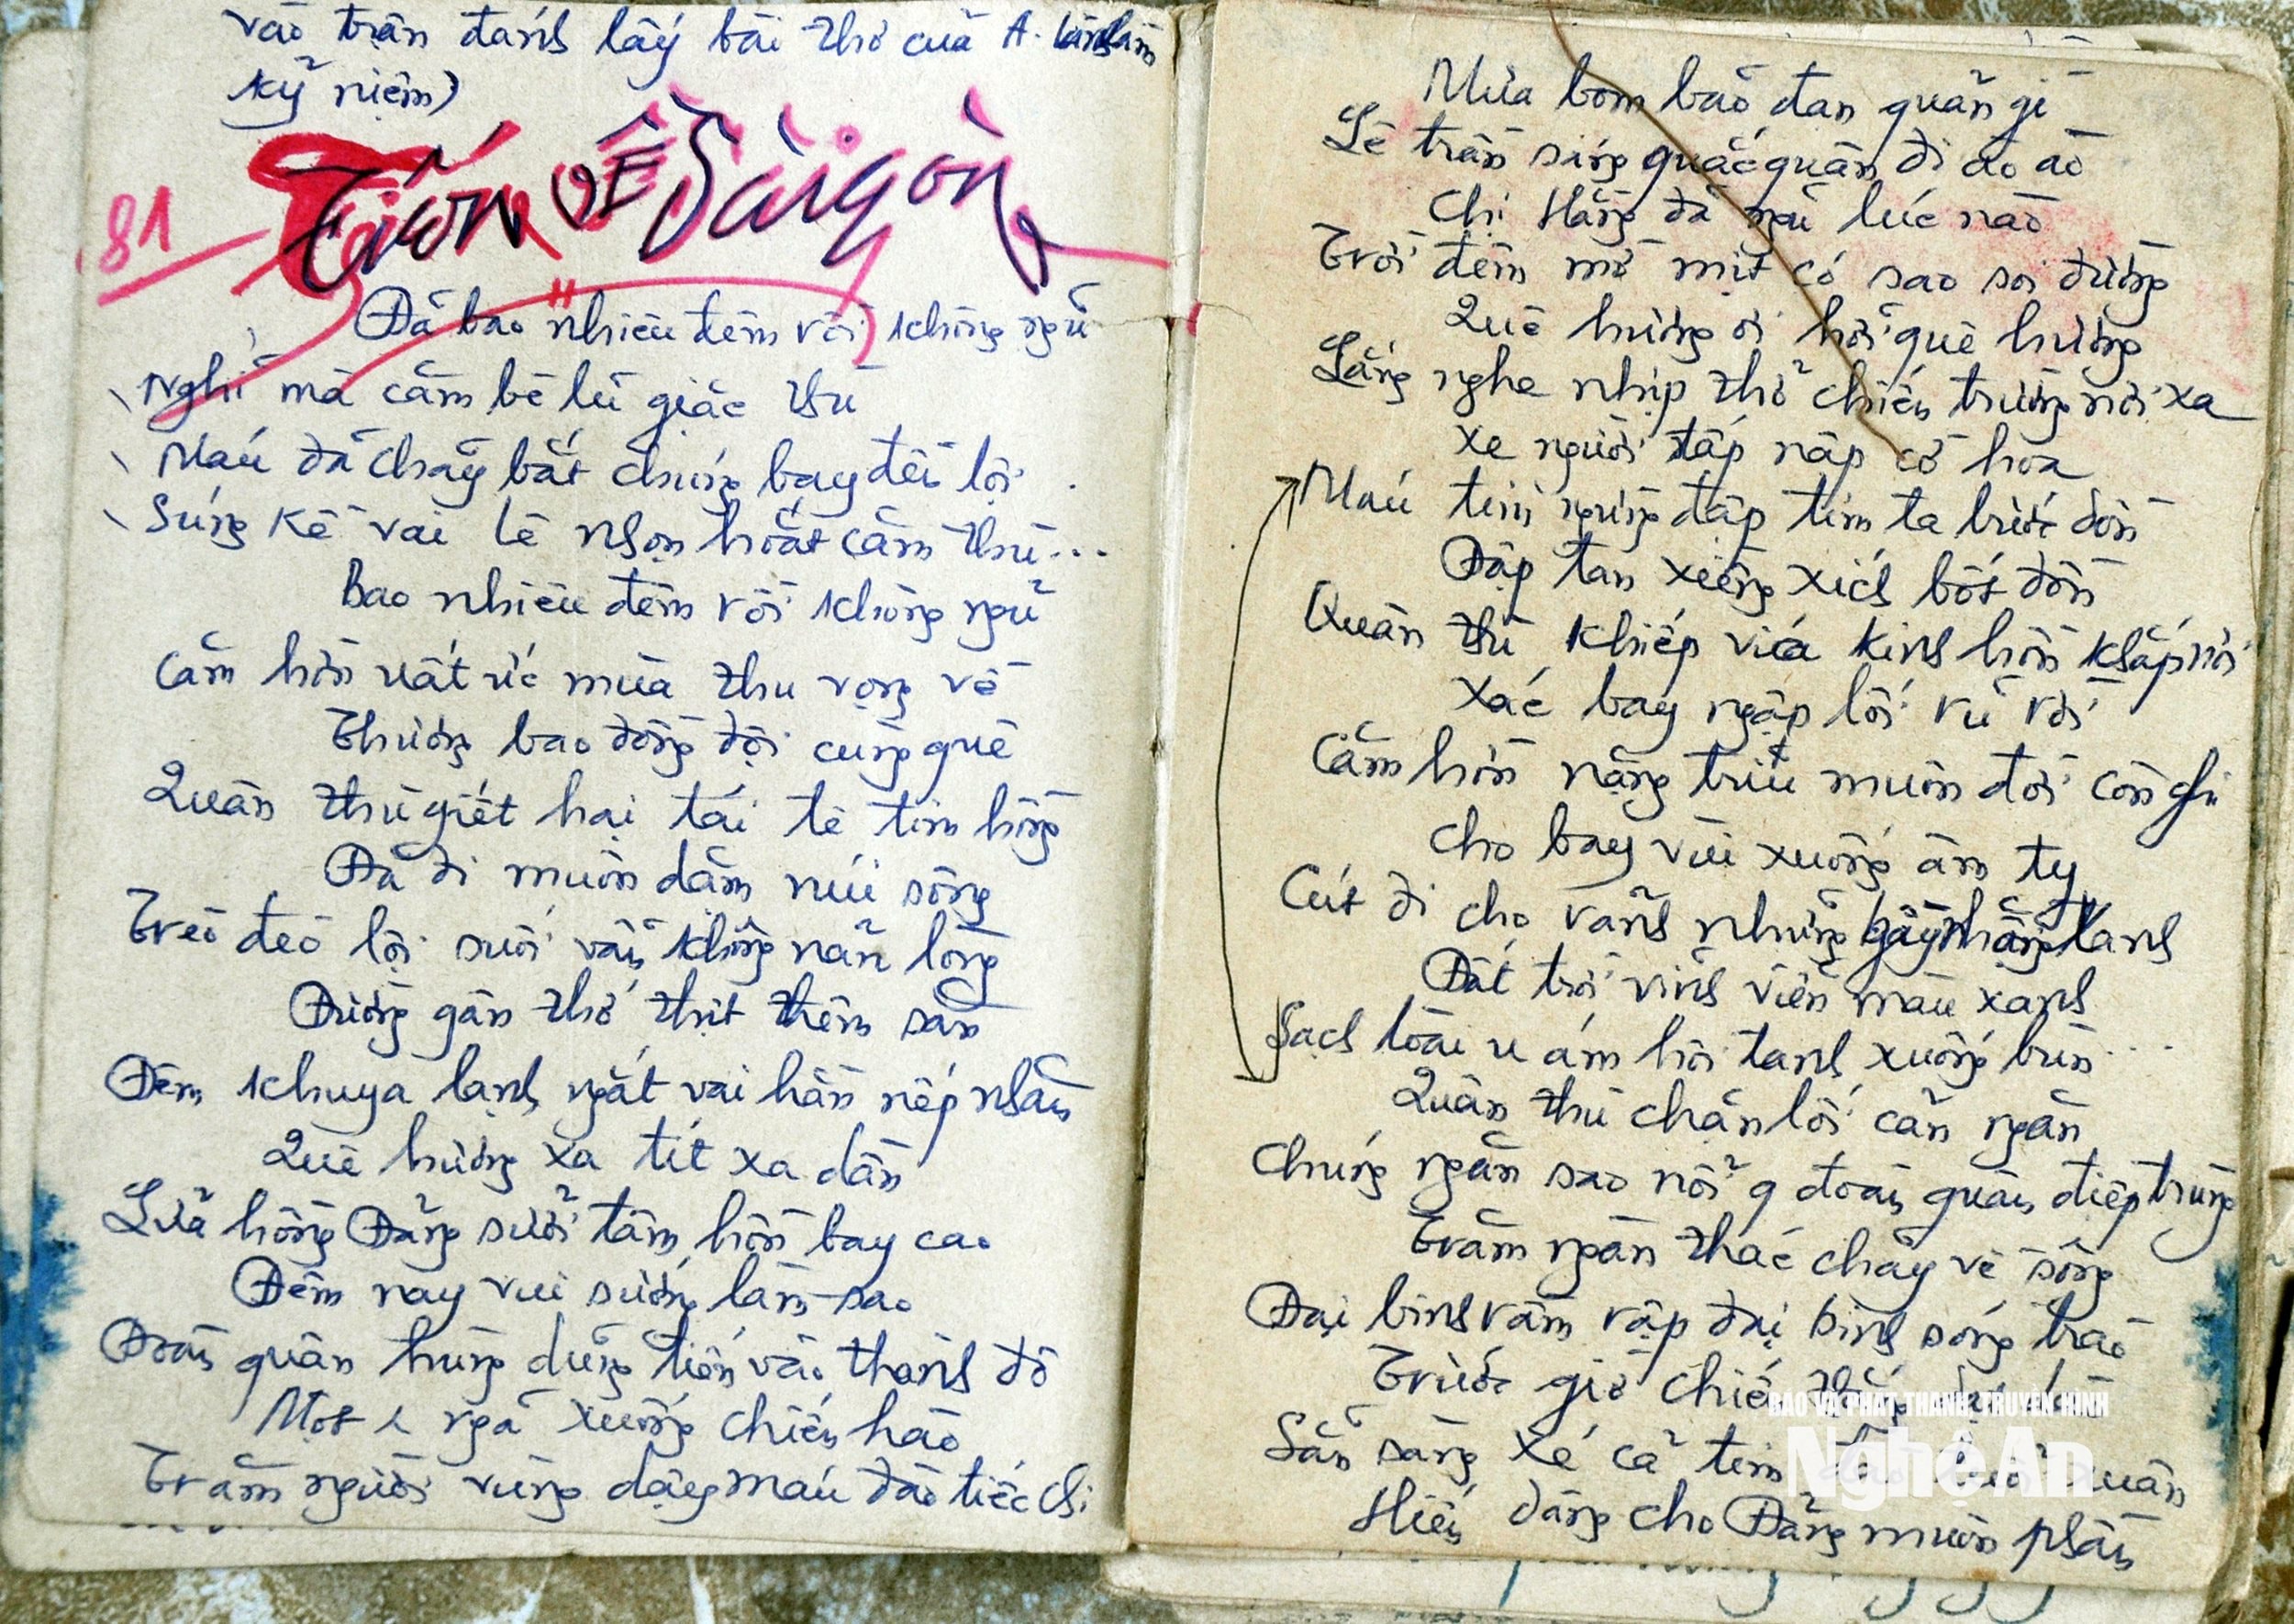 vào trận đánh lấy bài thơ của A. làm
kỷ niệm)
81
Tiến về Sài gòn
Đã bao nhiêu đêm rồi không ngủ
Nghĩ mà căm bè lũ giặc thù
Máu đã chảy bắt chúng bay đền tội.
Súng kề vai lê nhọn hoắt căm thù...
Bao nhiêu đêm rồi không ngủ
Căm hờn uất ức mùa thu vọng về
Thương bao đồng đội cùng quê
Quân thù giết hại tái tê tim hồng
Đã đi muôn dặm núi sông
Trèo đèo lội suối vẫn không nản lòng
Đường gân thớ thịt thêm săn
Đêm khuya lạnh ngắt vai hằn nếp nhăn
Quê hương xa tít xa dần
Lửa hồng Đảng sưởi tâm hồn bay cao
Đêm nay vui sướng làm sao
Đoàn quân hùng dũng tiến vào thành đô
Một ngã xuống chiến hào
Trăm người vùng dậy máu đào tiếc chi
Mưa bom bão đạn quản gì
Lê trần súng quắc quân đi ào ào
Chị Hằng đã ngủ lúc nào
Trời đêm mờ mịt có sao soi đường
Quê hương ơi hỡi quê hương
Lắng nghe nhịp thở chiến trường nơi xa
Xe người tấp nập cờ hoa
Máu tim ngừng đập tim ta bước dồn
Đập tan xiềng xích bốt đồn
Quân thù khiếp vía kinh hồn khắp nơi
Xác bay ngập lối rũ rời
Căm hờn nặng trĩu muôn đời còn ghi
Cho bay vùi xuống âm ty
Cút đi cho rảnh những tanh
Đất trời vĩnh viễn màu xanh
Sạch loài u ám hôi tanh xuống bùn...
Quân thù chặn lối cản ngăn
Chúng ngăn sao nổi đoàn quân điệp trùng
Trăm ngàn thác chảy về sông
Đại binh rầm rập đại binh sóng trào
Trước giờ chiến
Sẵn sàng xé cả tim quân
Hiến dâng cho Đảng muôn phần
BÁO VÀ PHÁT THANH, TRUYỀN HÌNH
Nghệ An